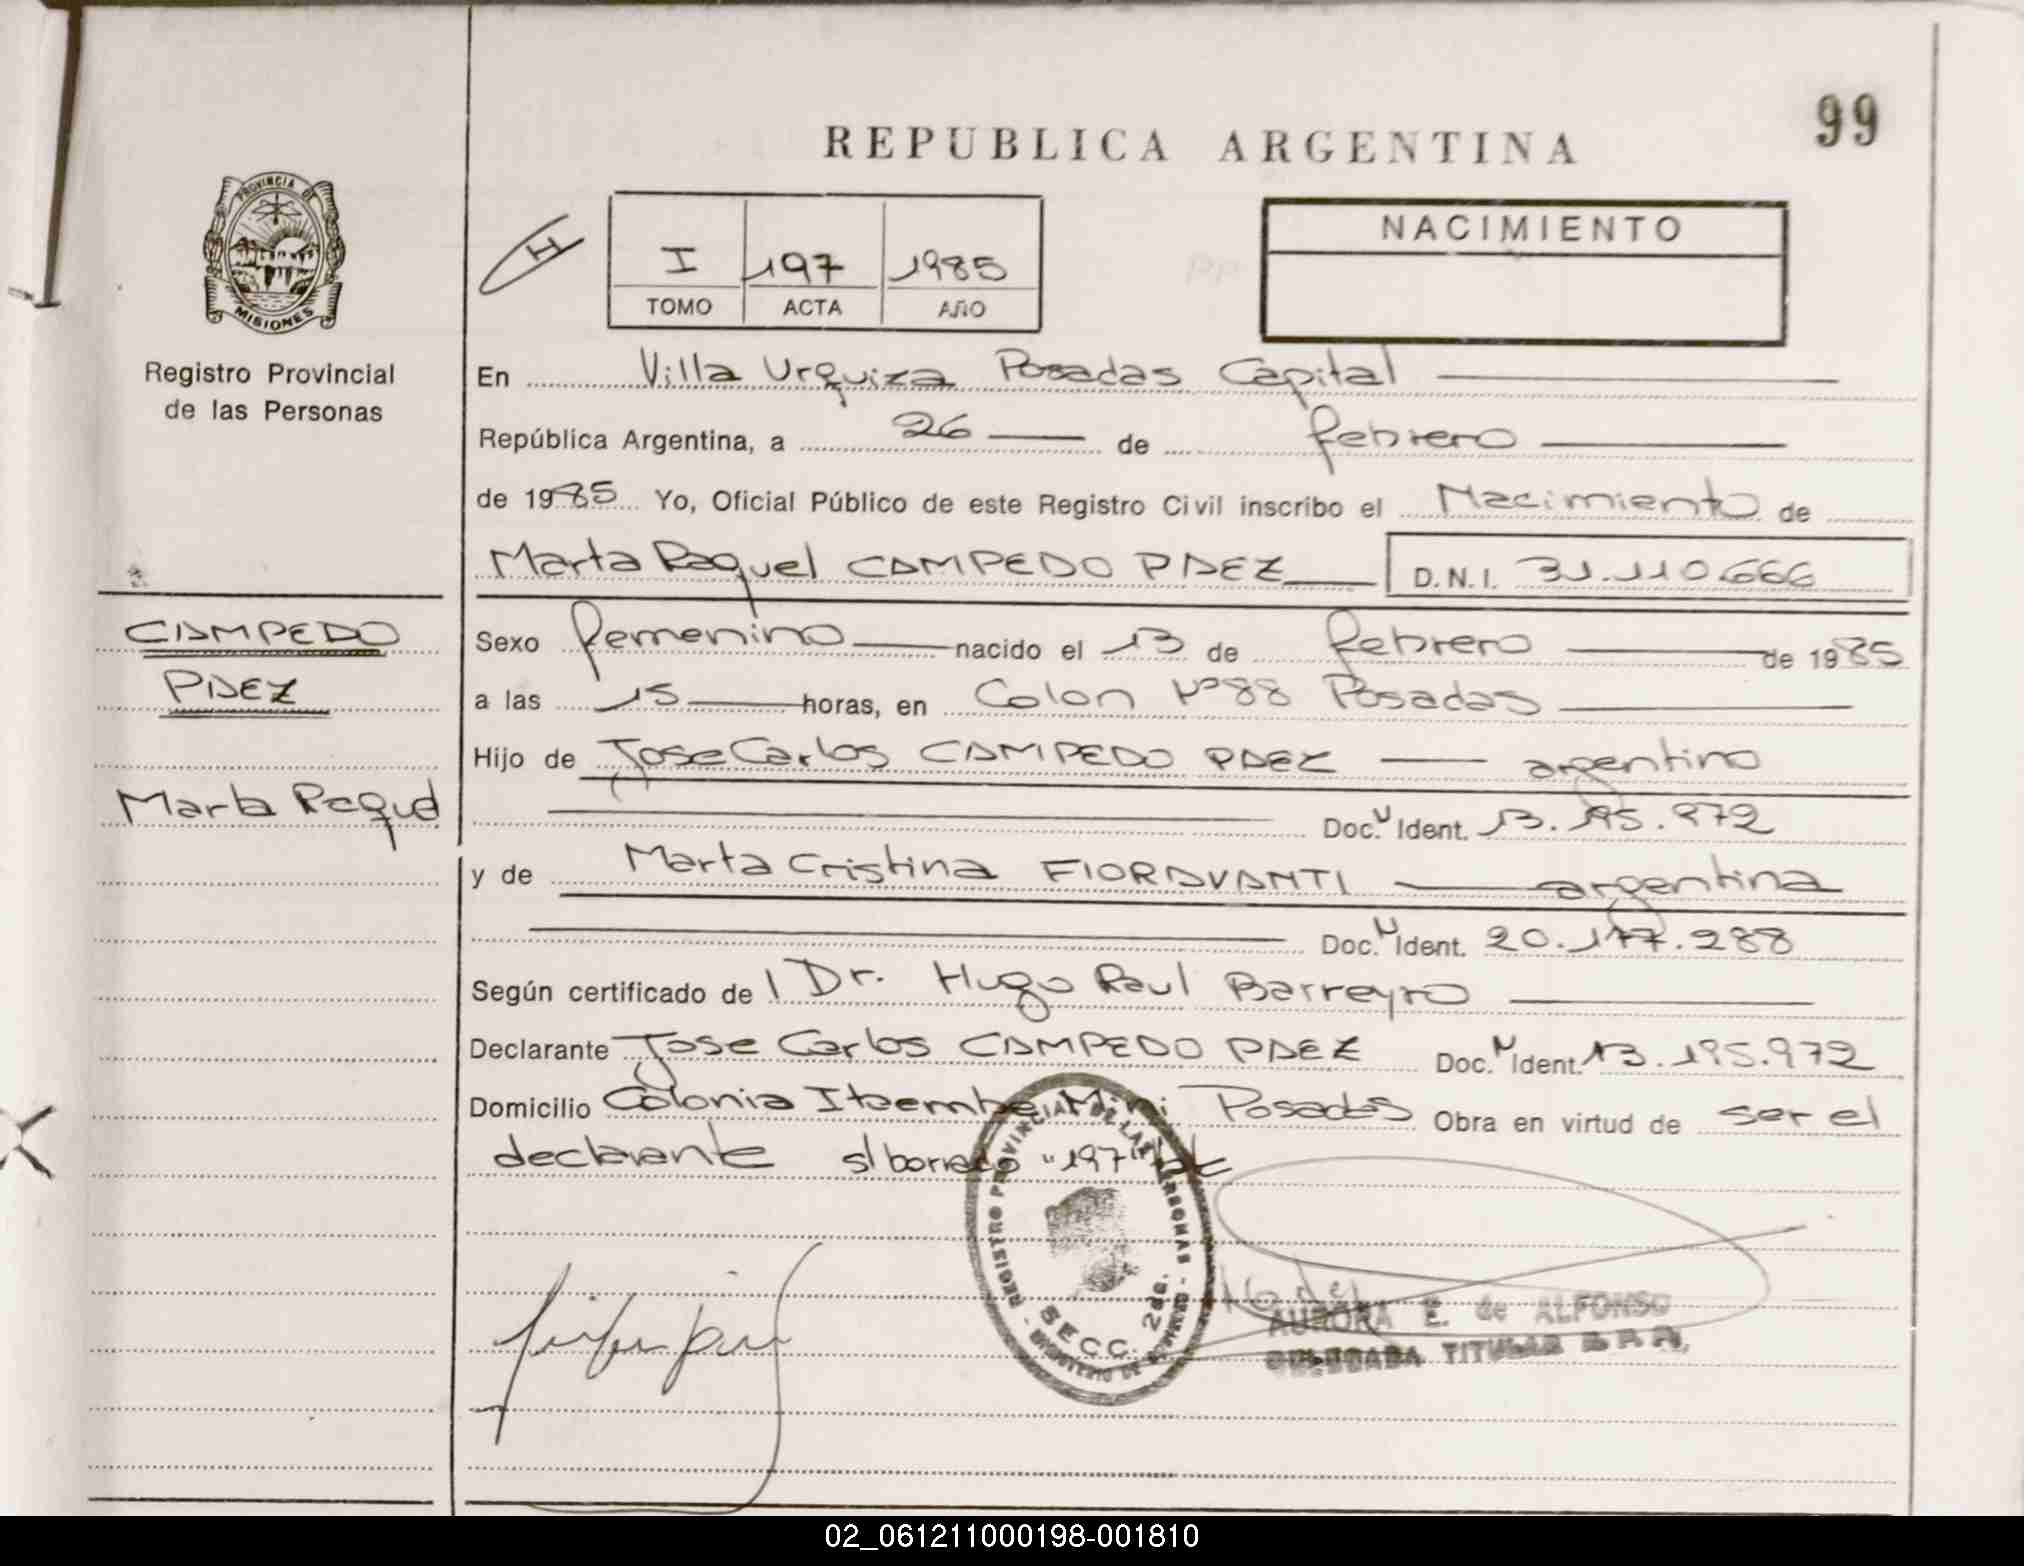 99
REPUBLICA ARGENTINA
PROVINCIA DE
MISIONES
Registro Provincial
de las Personas
H
I 197 1985
TOMO ACTA AÑO
NACIMIENTO
En Villa Urquiza Posadas Capital
República Argentina, a 26 de febrero
de 1985 Yo, Oficial Público de este Registro Civil inscribo el Nacimiento de
Marta Raquel CAMPEDO PAEZ D.N.I. 31.110.666
CAMPEDO
PAEZ
Marta Raquel
Sexo femenino nacido el 13 de febrero de 1985
a las 15 horas, en Colon Nº 88 Posadas
Hijo de Jose Carlos CAMPEDO PAEZ argentino
Doc. N Ident. 13.195.972
y de Marta Cristina FIORAVANTI argentina
Doc. N Ident. 20.177.288
Según certificado de l Dr. Hugo Raul Barreyro
Declarante Jose Carlos CAMPEDO PAEZ Doc. N Ident. 13.195.972
Domicilio Colonia Itaembe Mini Posadas Obra en virtud de ser el
declarante s/borrado "197"
REGISTRO PROVINCIAL DE LAS PERSONAS - MINISTERIO DE
SECC. 2da.
AURORA E. de ALFONSO
DELEGADA TITULAR
02_061211000198-001810